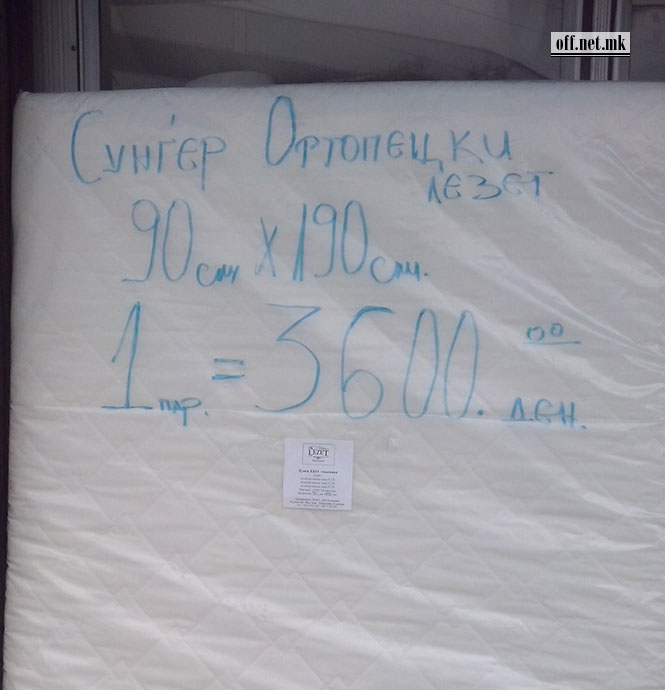 off.net.mk
Сунѓер Ортопецки
лезет
90 см X 190 см.
1 пар. = 3600.00 ден.
LEZET